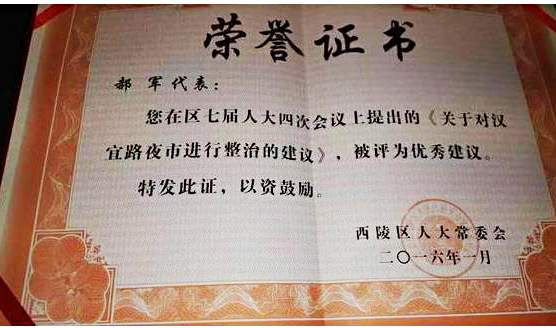 荣誉证书
郝 军代表：
您在区七届人大四次会议上提出的《关于对汉
宜路夜市进行整治的建议》，被评为优秀建议。
特发此证，以资鼓励。
西陵区人大常委会
二〇一六年一月